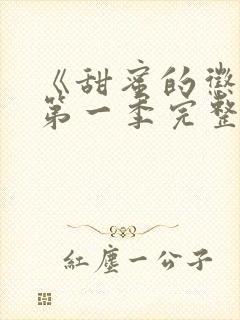 《甜蜜的懲
第一季完整
紅塵一公子